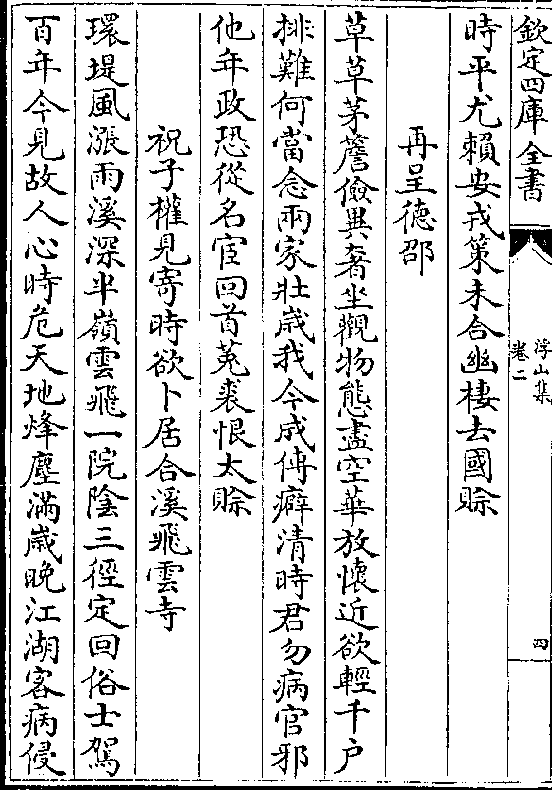 欽定四庫全書
浮山集
卷二
四
時平尤賴安戎策未合幽棲去國賒
再呈德邵
草草茅簷儉異奢坐觀物態盡空華放懷近欲輕千户
排難何當念兩家壯歲我今成傳癖清時君勿病官邪
他年政恐從名宦回首菟裘恨太賒
祝子權見寄時欲卜居合溪飛雲寺
環堤風漲雨溪深半嶺雲飛一院陰三徑定回俗士駕
百年今見故人心時危天地烽塵滿歲晚江湖客病侵